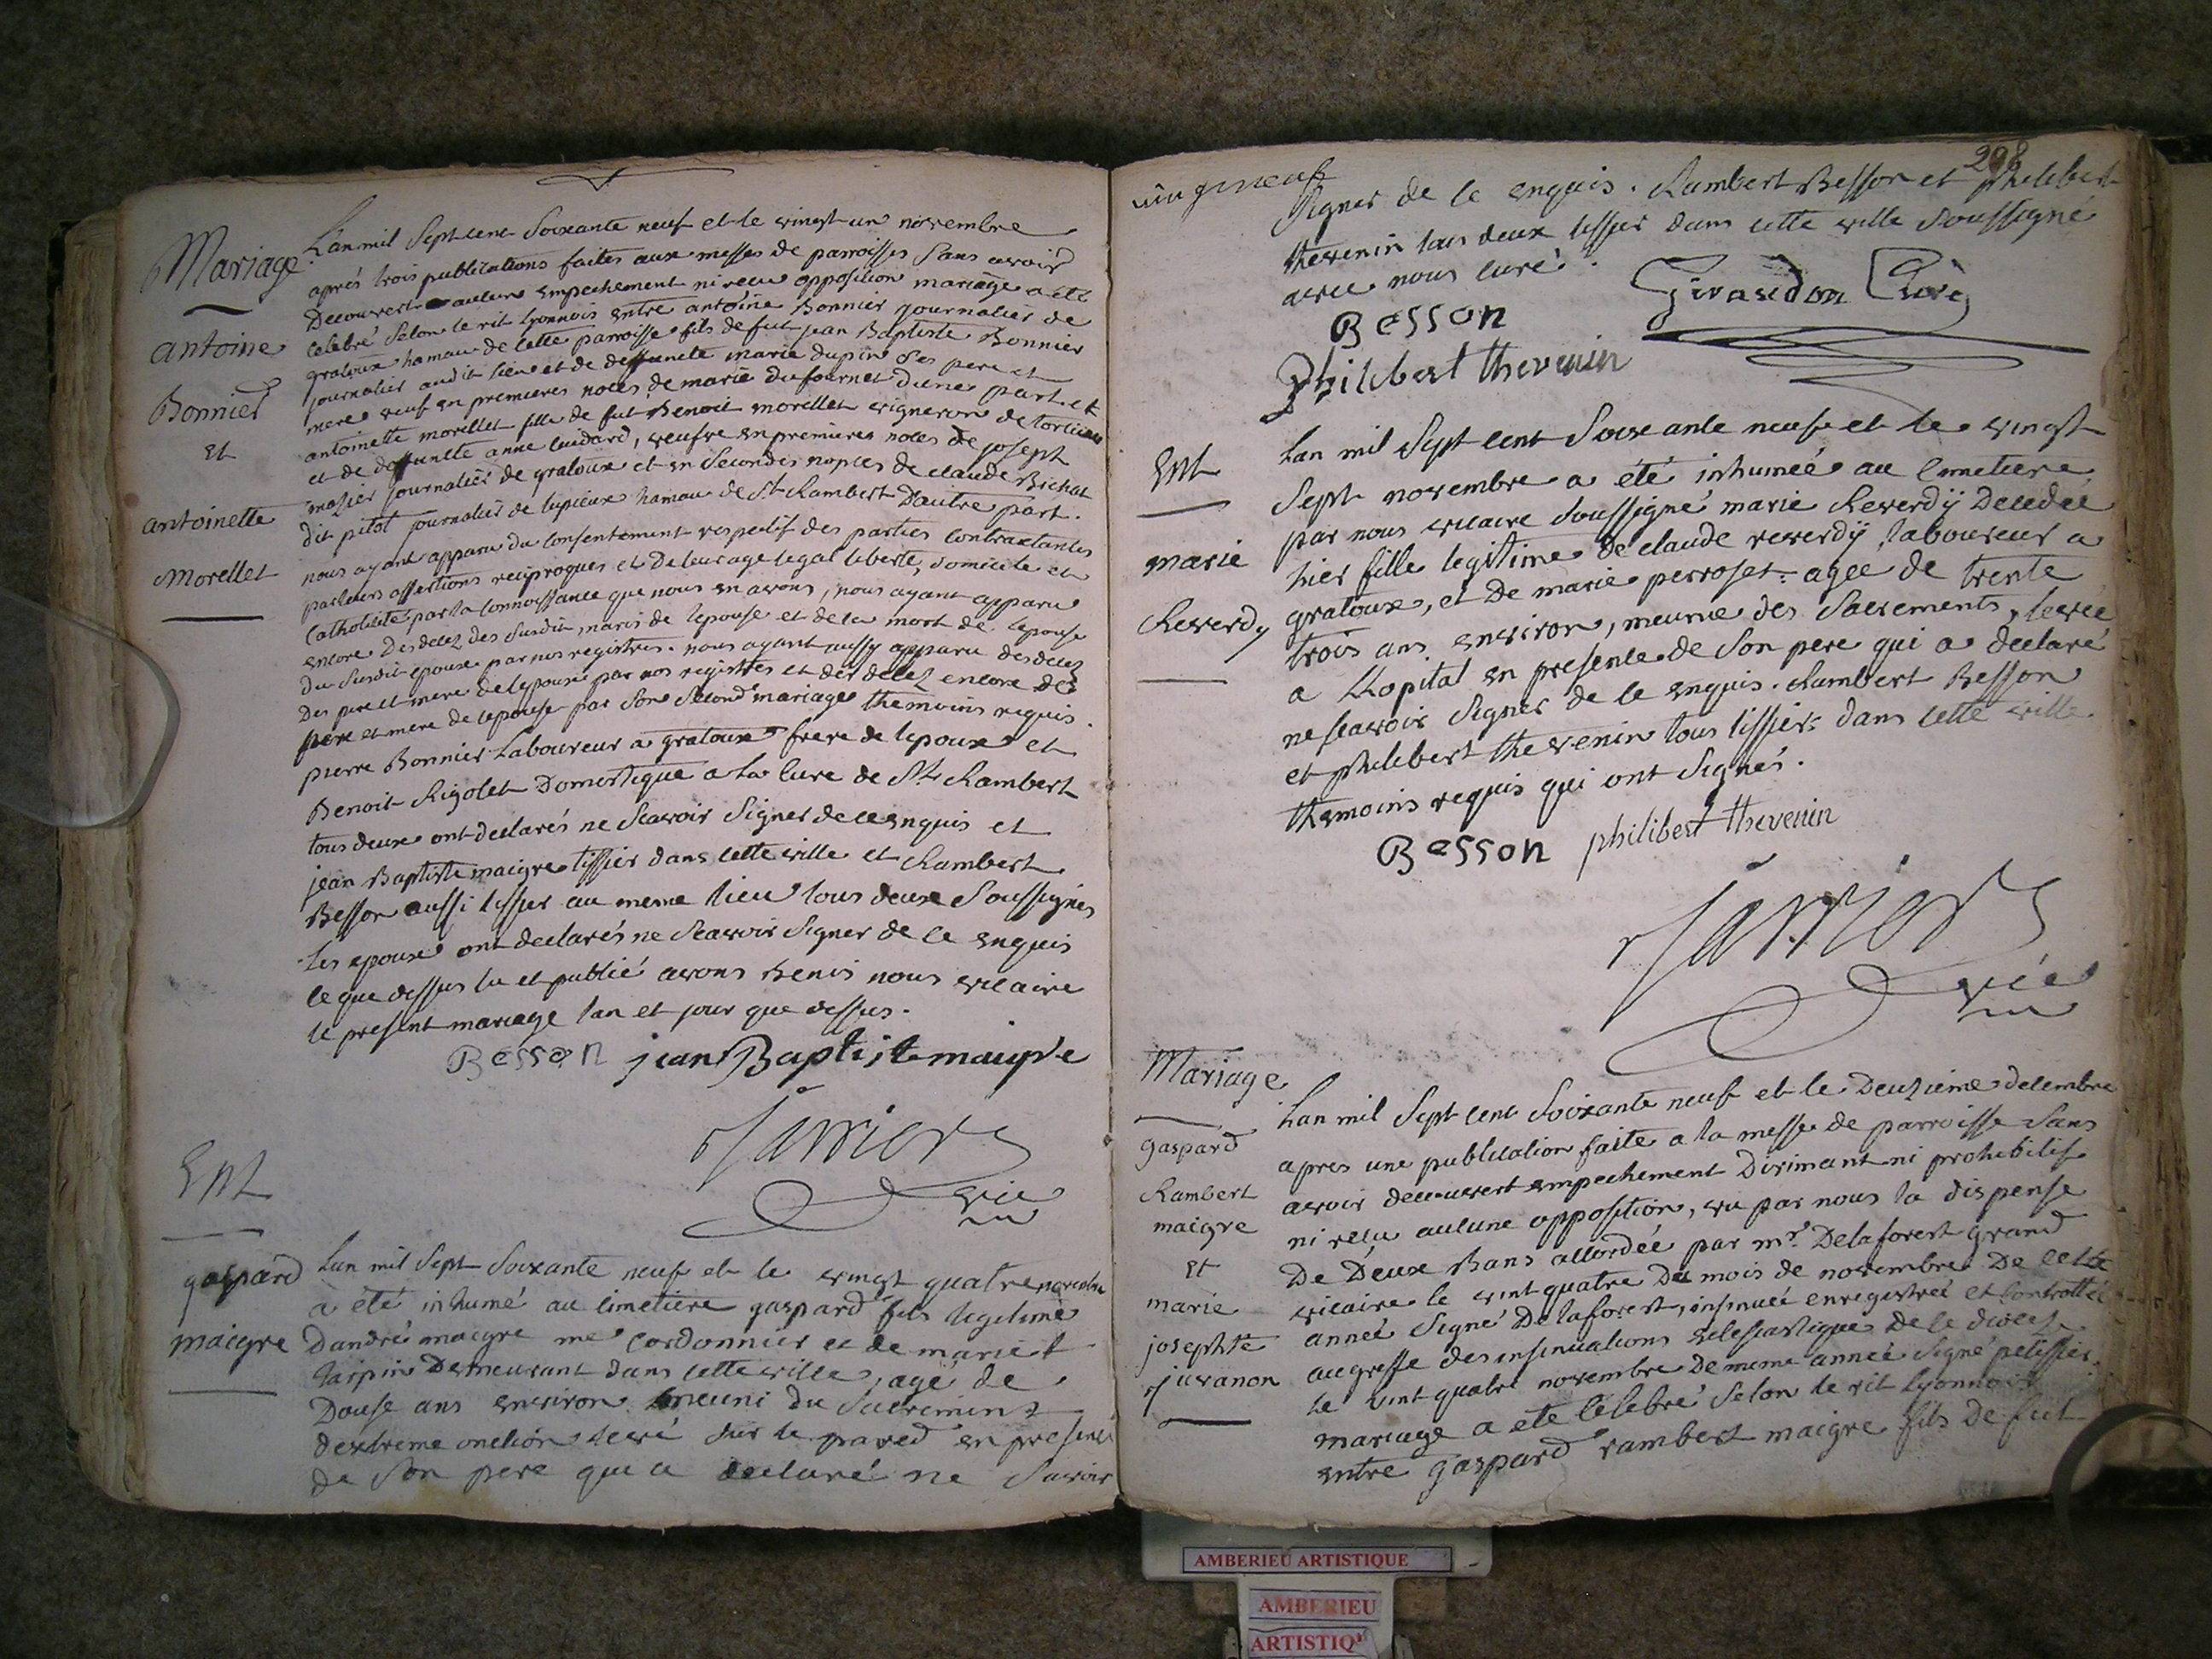 Mariage
antoine
Bonnier
et
antoinette
Morellet
L'an mil Sept cent Soixante neuf et le vingt un novembre
aprés trois publications faites aux messes de parroisses Sans avoir
Decouvert aucun empechement ni recu opposition mariage a été
celebré Selon le rit Lyonnois entre antoine Bonnier journalier de
gratoux hamau de cette parroisse fils de fut jean Baptiste Bonnier
journalier audit lieu et de deffuncte marie dupin Ses pere et
mere veuf en premieres noces de marie dufournet dune part et
antoinette morellet fille de fut Benoit morellet vigneron de torcieu
et de deffuncte anne luidard, veufve en premieres noces de joseph
mazier journalier de gratoux et en Secondes nopces de claude Bichat
dit pitot journalier de lupieux hamau de St Rambert D'autre part.
nous ayant apparu du consentement respectif des parties contractantes
par leurs assertions reciproques et De leur age legal liberté, domicile et
Catholicité par la connoissance que nous en avons, nous ayant apparu
encore Des decez des Susdits maris de lepouse et de la mort de lepouse
du Susdit epoux par nos registres. nous ayant aussy apparu des decez
Des pere et mere de lepoux par nos registres et des decez encore des
pere et mere de lepouse par Son Second mariage themoins requis.
pierre Bonnier Laboureur a gratoux frere de lepoux et
Benoit Rigolet Domestique a la Cure de St Rambert
tous deux ont declarés ne Scavoir Signer de ce enquis et
jean Baptiste maigre tissier dans cette ville et Rambert
Besson aussi tissier au meme lieu tous deux Soussignés
Les epoux ont declarés ne Scavoir Signer de ce enquis
ce que dessus lu et publié avons Benis nous vicaire
le present mariage lan et jour que dessus.
Besson jean Baptiste maigre
vic
Ent
gaspard
maigre
Lan mil Sept Soixante neuf et le vingt quatre novembre
a été inhumé au cimetiere gaspard fils legitime
Dandré maigre me Cordonnier et de marie
Demeurant dans cette ville, agé de
Douse ans environ muni du Sacrement
dextreme onction levé Sur le paved en presence
de Son pere qui a declaré ne Savoir
298
Signer de ce enquis. Rambert Besson et philibert
thevenin tous deux tissier dans cette ville Soussigné
avec nous curé.
Besson Giraudon Curé
philibert thevenin
Ent
marie
Reverdy
Lan mil Sept cent Soixante neuf et le vingt
Sept novembre a été inhumeé au Cimetiere
par nous vicaire Soussigné marie Reverdÿ Decedeé
hier fille legitime de claude reverdÿ laboureur a
gratoux, et De marie perroset. agee de trente
trois ans environ, meunie des Sacrements, leveé
a Lhopital en presence de Son pere qui a declaré
ne scavoir Signer de ce enquis. Rambert Besson
et philibert thevenin tous tissier dans cette ville.
themoins requis qui ont Signés.
Besson philibert thevenin
vic
Mariage
gaspard
Rambert
maigre
et
marie
josephte
juvanon
Lan mil Sept cent Soixante neuf et le Deuzieme decembre
apres une publication faite a la messe de parroisse Sans
avoir decouvert empechement Dirimant ni prohibitif
ni reçu aucune opposition, vu par nous la dispense
De Deux Bans accordéé par mr. Delaforest grand
vicaire le vint quatre Du mois de novembre De cette
anneé Signé Delaforest, insinueé enregistreé et Controlleé
au greffe des insinuations eclesiastiques de ce dioceze
le vint quatre novembre De meme anneé Signé pelissier.
mariage a eté celebré Selon le rit Lyonnois
entre gaspard rambert maigre fils De fut
AMBERIEU ARTISTIQUE
AMBERIEU
ARTISTIQ